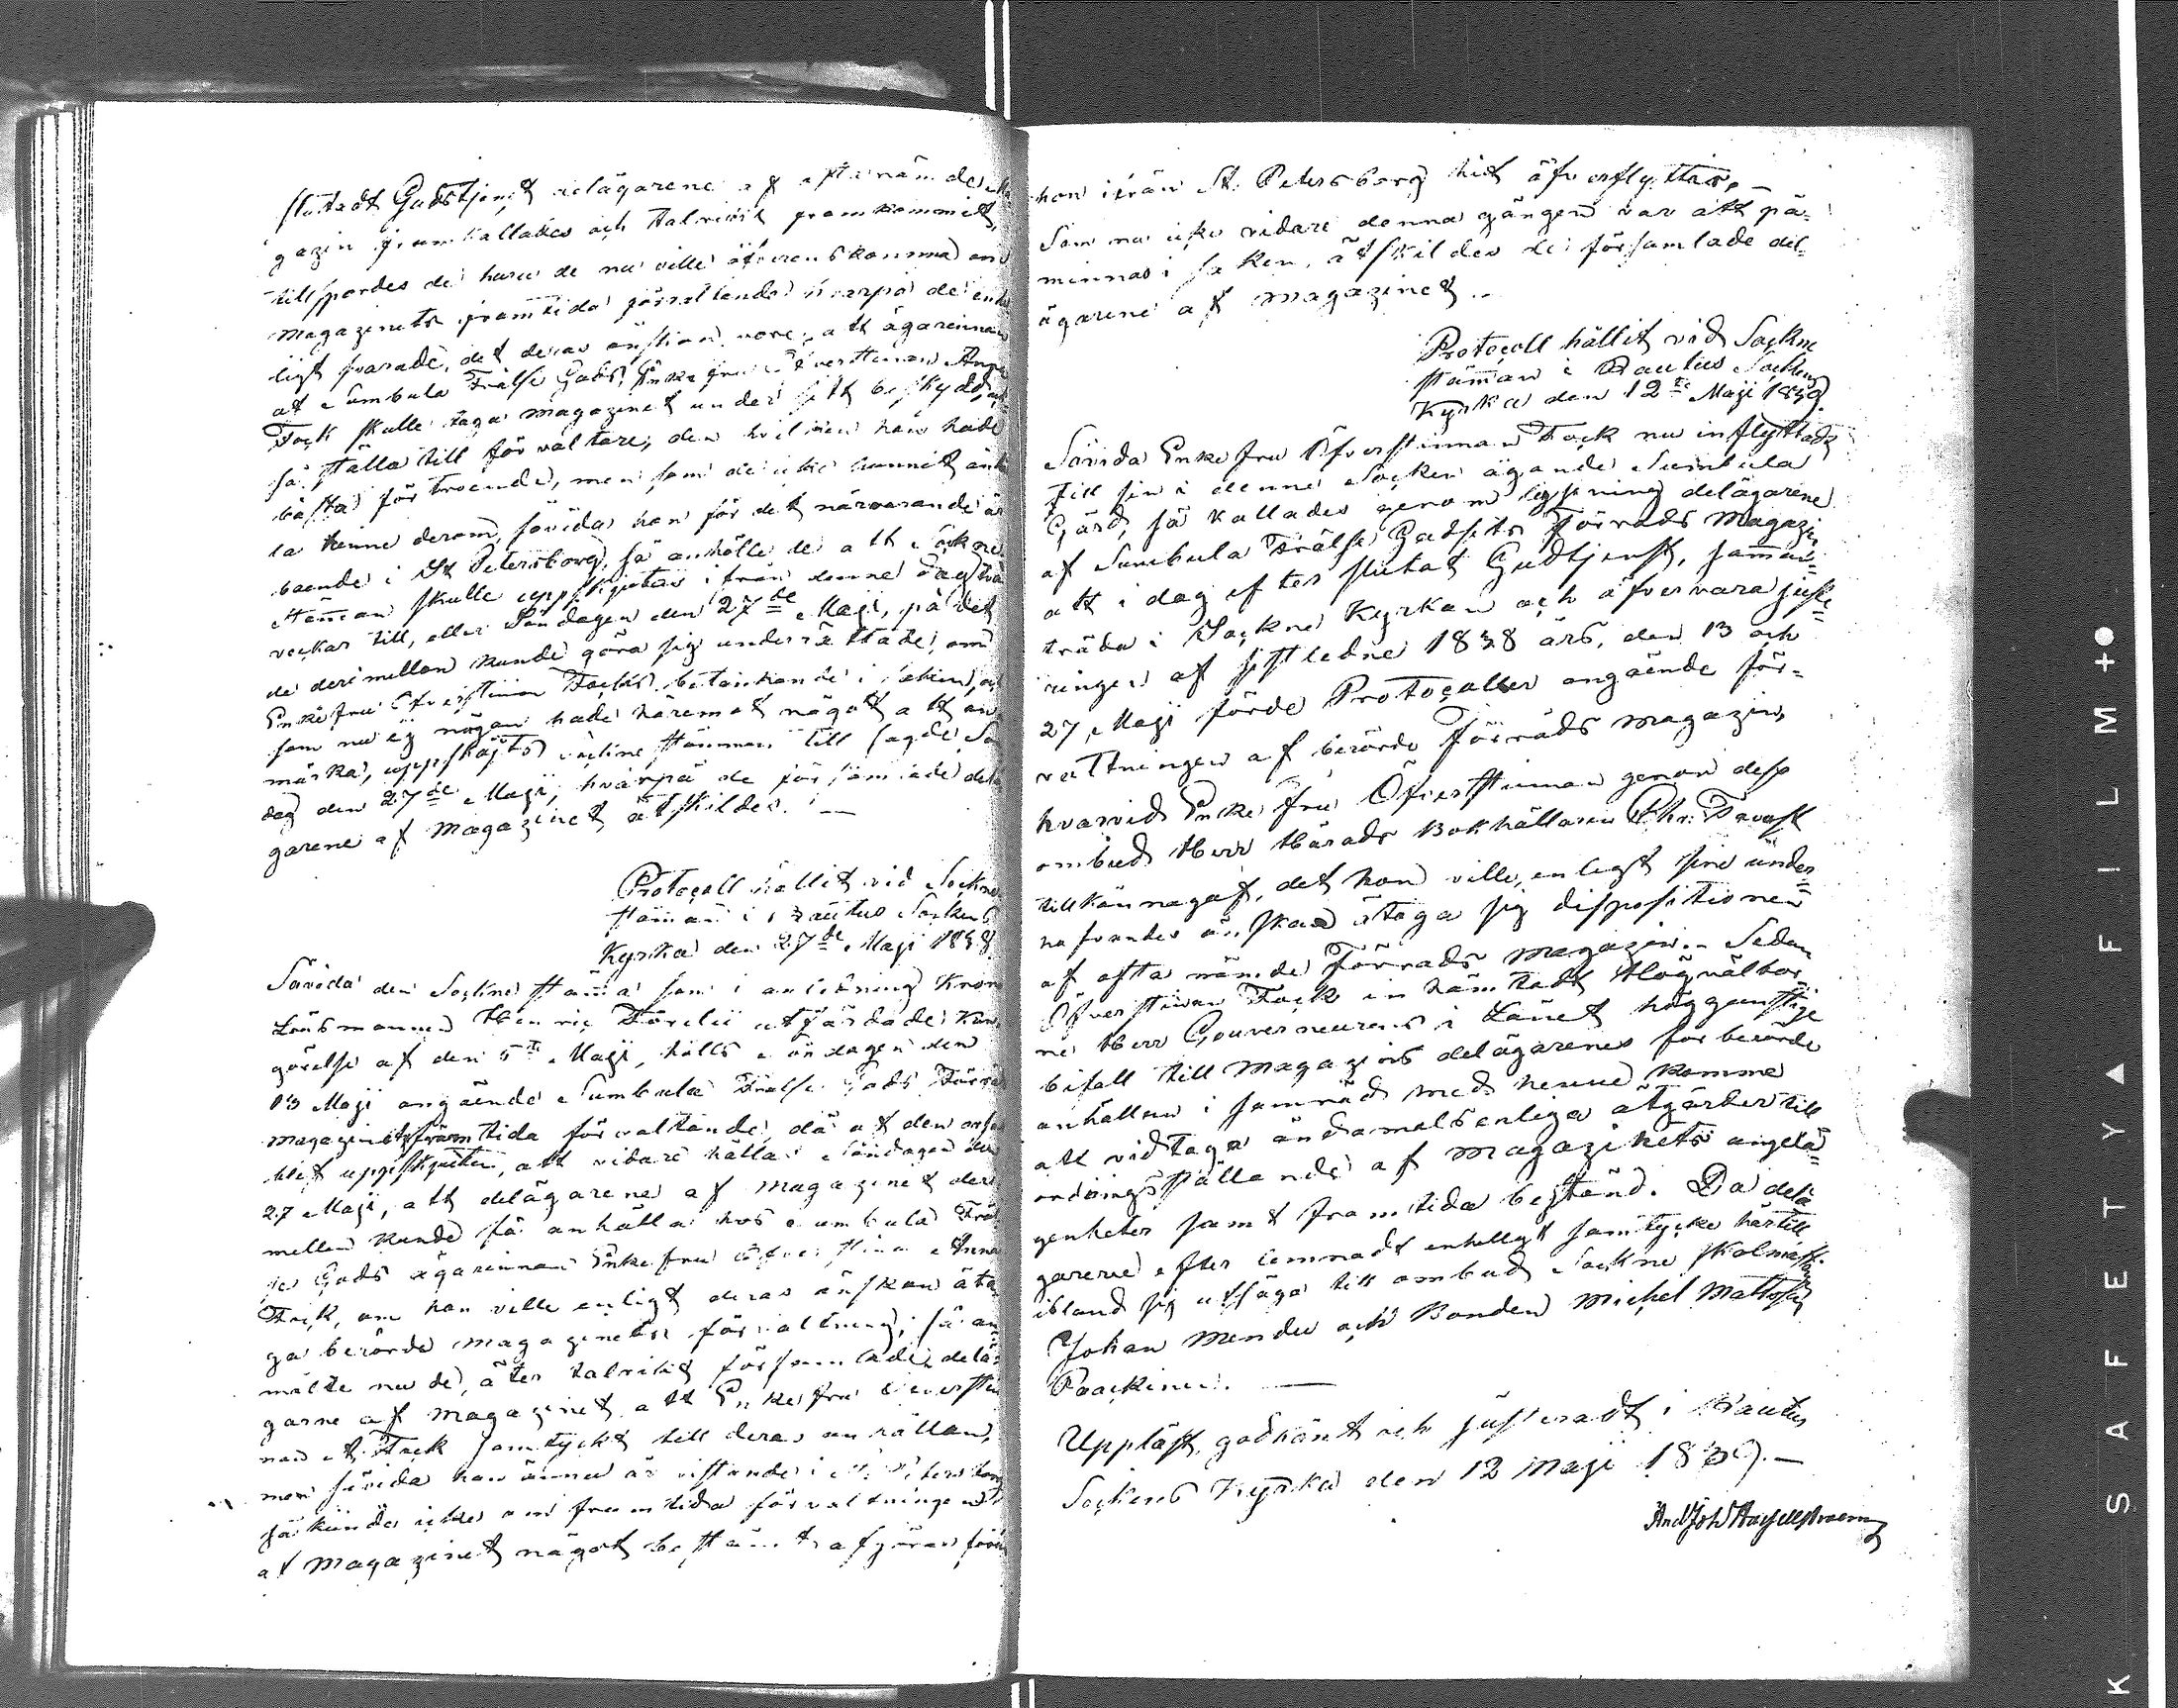 slutadt Gudstjenst delägarene af ofta nämde Ma
gazin framkallades och talrickt framkommit,
tillspordes de huru de nu ville öfverenskomma om
magazinets framtida förvaltande hvarpå de enhäl
ligt svarade, det deras önskan vore, att ägarinnan
af Sumbula Frälse Gods, Enkefru Öfverstinnan Anna
Fock skulle taga magazinet under sitt beskydd, och
så ställa till förvaltare, den hvilken hon hade
bästa förtroende, men som de icke hunnit anhål
la henne derom, såvida hon för det närvarande är
boende i St Petersborg, så anhölle de att Sockne
stämman skulle uppskjutas ifrån denne dag två
veckor till, eller Söndagen den 27de Maji, på det
de derimellan kunde göra sig underrättade, om
Enkefru Öfverstinnan Focks betänkande i saken, och
som nu ej någon hade häremot något att an
märka, uppsköjts Sockne stämman till sagde Sön
dag den 27de Maji, hvarpå de församlade delä
garene af magazinet åtskildes. —
Protocoll hållit vid Sockne
stämman i Rautus Sockens
Kyrka den 27de Maji 1838
Såvida den Sockne stämma som i anledning Krono
Länsmannen Henric Förelii utfärdade kun
görelse af den 5te Maji, hölls Söndagen den
13 Maji angående Sumbula Frälse Gods Förråds
magazinets framtida förvaltande, då af den orsak
blef uppskjuten, att vidare hållas Söndagen den
27 Maji, att delägarene af magazinet der
mellan kunde få anhålla hos Sumbula Fräl
se Gods ägarinnan Enkefru Öfverstinnan Anna
Fock, om hon ville enligt deras önskan åta
ga berörde magazinets förvaltning; så an
mälte nu de, åter talrikt församlade delä
garne af magazinet att Enkefru Öfverstin
nan A. Fock samtyckt till deras anhållan,
men såvida hon ännu är vistande i St. Petersborg
så kunde icke om framtida förvaltningen
af magazinet något bestämt afgöras förrän
hon ifrån St. Petersborg hit öfverflyttar. —
Som nu icke vidare denna gången var att på-
minnas i saken, åtskildes de församlade del-
ägarene af magazinet. —
Protocoll hållit vid Sockne
stämman i Rautus Sockens
Kyrka den 12te Maji 1839.
Såvida Enkefru Öfverstinnan Fock nu inflyttadt
till sin i denne Socken ägande Sumbula
Gård, så kallades genom lysning delägarene
af Sumbula Frälse Godsets Förråds Magazin
att i dag efter slutat Gudtjenst, samman-
träda i Sockne Kyrkan och öfvervara juste-
ringen af sistledne 1838 års, den 13 och
27 Maji förde Protocoller angående för-
vattningen af berörde förråds magazin,
hvarvid Enke fru Öfverstinnan genom dess
ombud Herr Härads Bokhållaren Chr: Tavast
tillkännagaf, det hon ville, enligt sine under-
hafvandes önskan åtaga sig dispositionen
af ofta nämde Förråds magazin. – Sedan
Öfverstinnan Fock inhämtadt Högvälbor-
ne Herr Gouverneurens i Länet höggunstige
bifall till magazins delägarenes förberörde
anhållan i samråd med henne komme
att vidtaga ändamålsenliga åtgärder till
ordningsställande af magazinets angelä-
genheter samt framtida bestånd. Då delä
garene efter lemnadt enhelligt samtycke härtill
ibland sig utsågo till ombud Sockne Skolmästaren
Johan Mendu och Bonden Michel Mattsson
Paackinen. —
Uppläst, godkänt och justeradt i Rautus
Sockens Kyrka den 12 Maji 1839. —
And Joh Hagelstroem